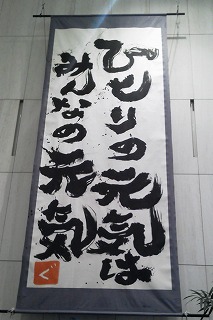 ひとりの元気は
みんなの元気
ぐ